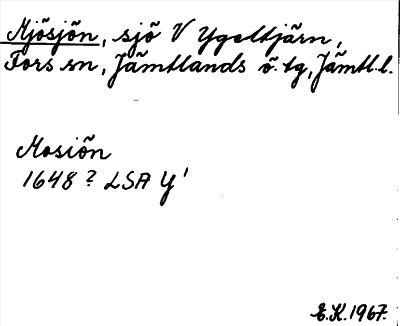 Mjösjön, sjö V Ygeltjärn,
Fors sn, Jämtlands ö. tg, Jämtl. l.
Mosiön
1648? LSA Y¹
E.K. 1967.